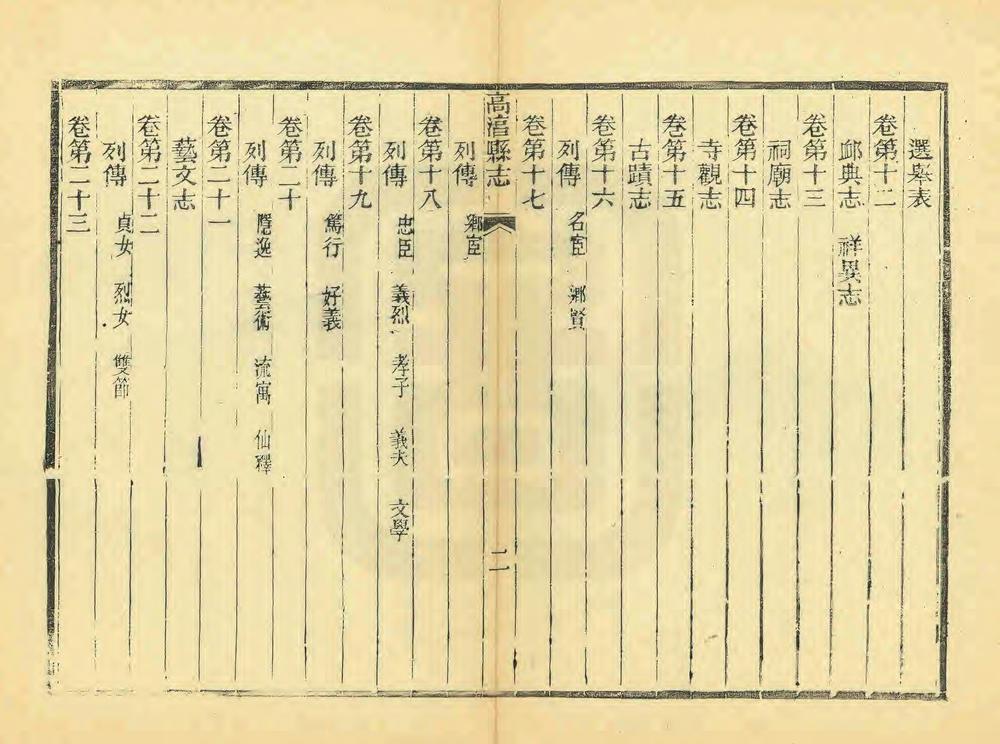 選舉表
卷第十二
卹典志 祥異志
卷第十三
祠廟志
卷第十四
寺觀志
卷第十五
古蹟志
卷第十六
列傳 名宦 鄉賢
卷第十七
高淳縣志 二
列傳 鄉宦
卷第十八
列傳 忠臣 義烈 孝子 義夫 文學
卷第十九
列傳 篤行 好義
卷第二十
列傳 隱逸 藝術 流寓 仙釋
卷第二十一
藝文志
卷第二十二
列傳 貞女 烈女 雙節
卷第二十三